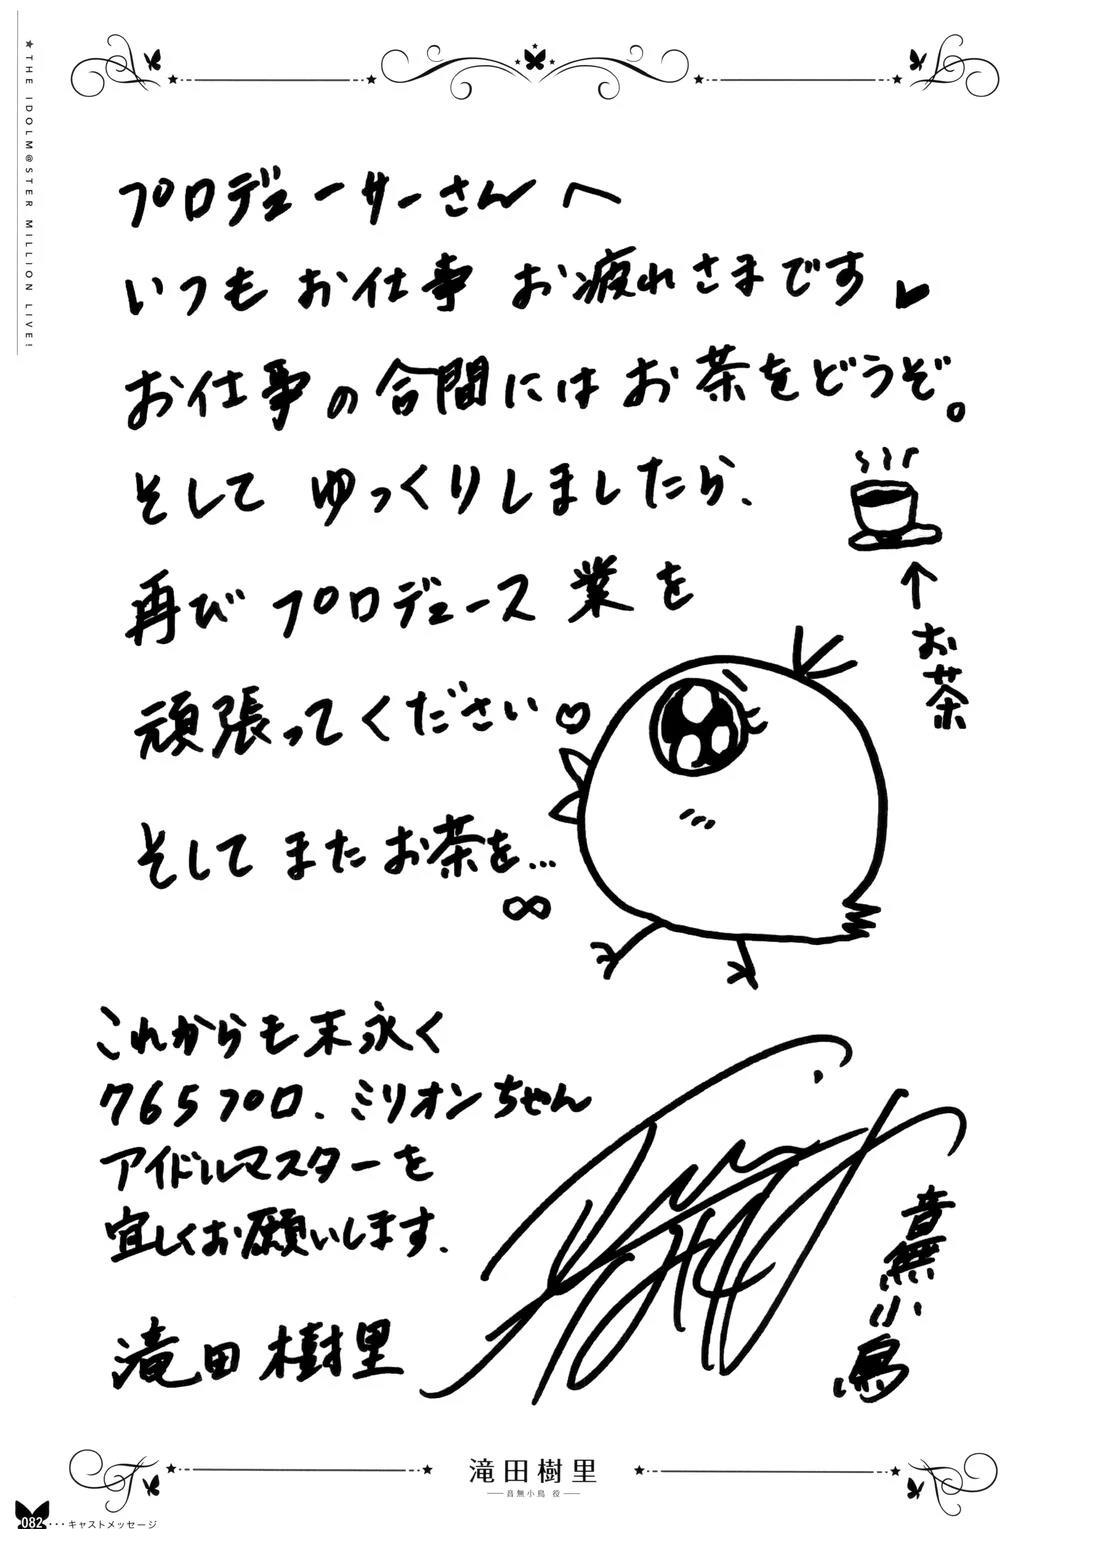 ★THE IDOLM@STER MILLION LIVE!
プロデューサーさんへ
いつもお仕事 お疲れさまです♥
お仕事の合間にはお茶をどうぞ。
そして ゆっくりしましたら、
再びプロデュース業を
頑張ってください♡
そしてまたお茶を…
∞
↑
お茶
これからも末永く
765プロ、ミリオンちゃん
アイドルマスターを
宜しくお願いします.
滝田樹里
音無小鳥
滝田樹里
音無小鳥 役
082・・・キャストメッセージ